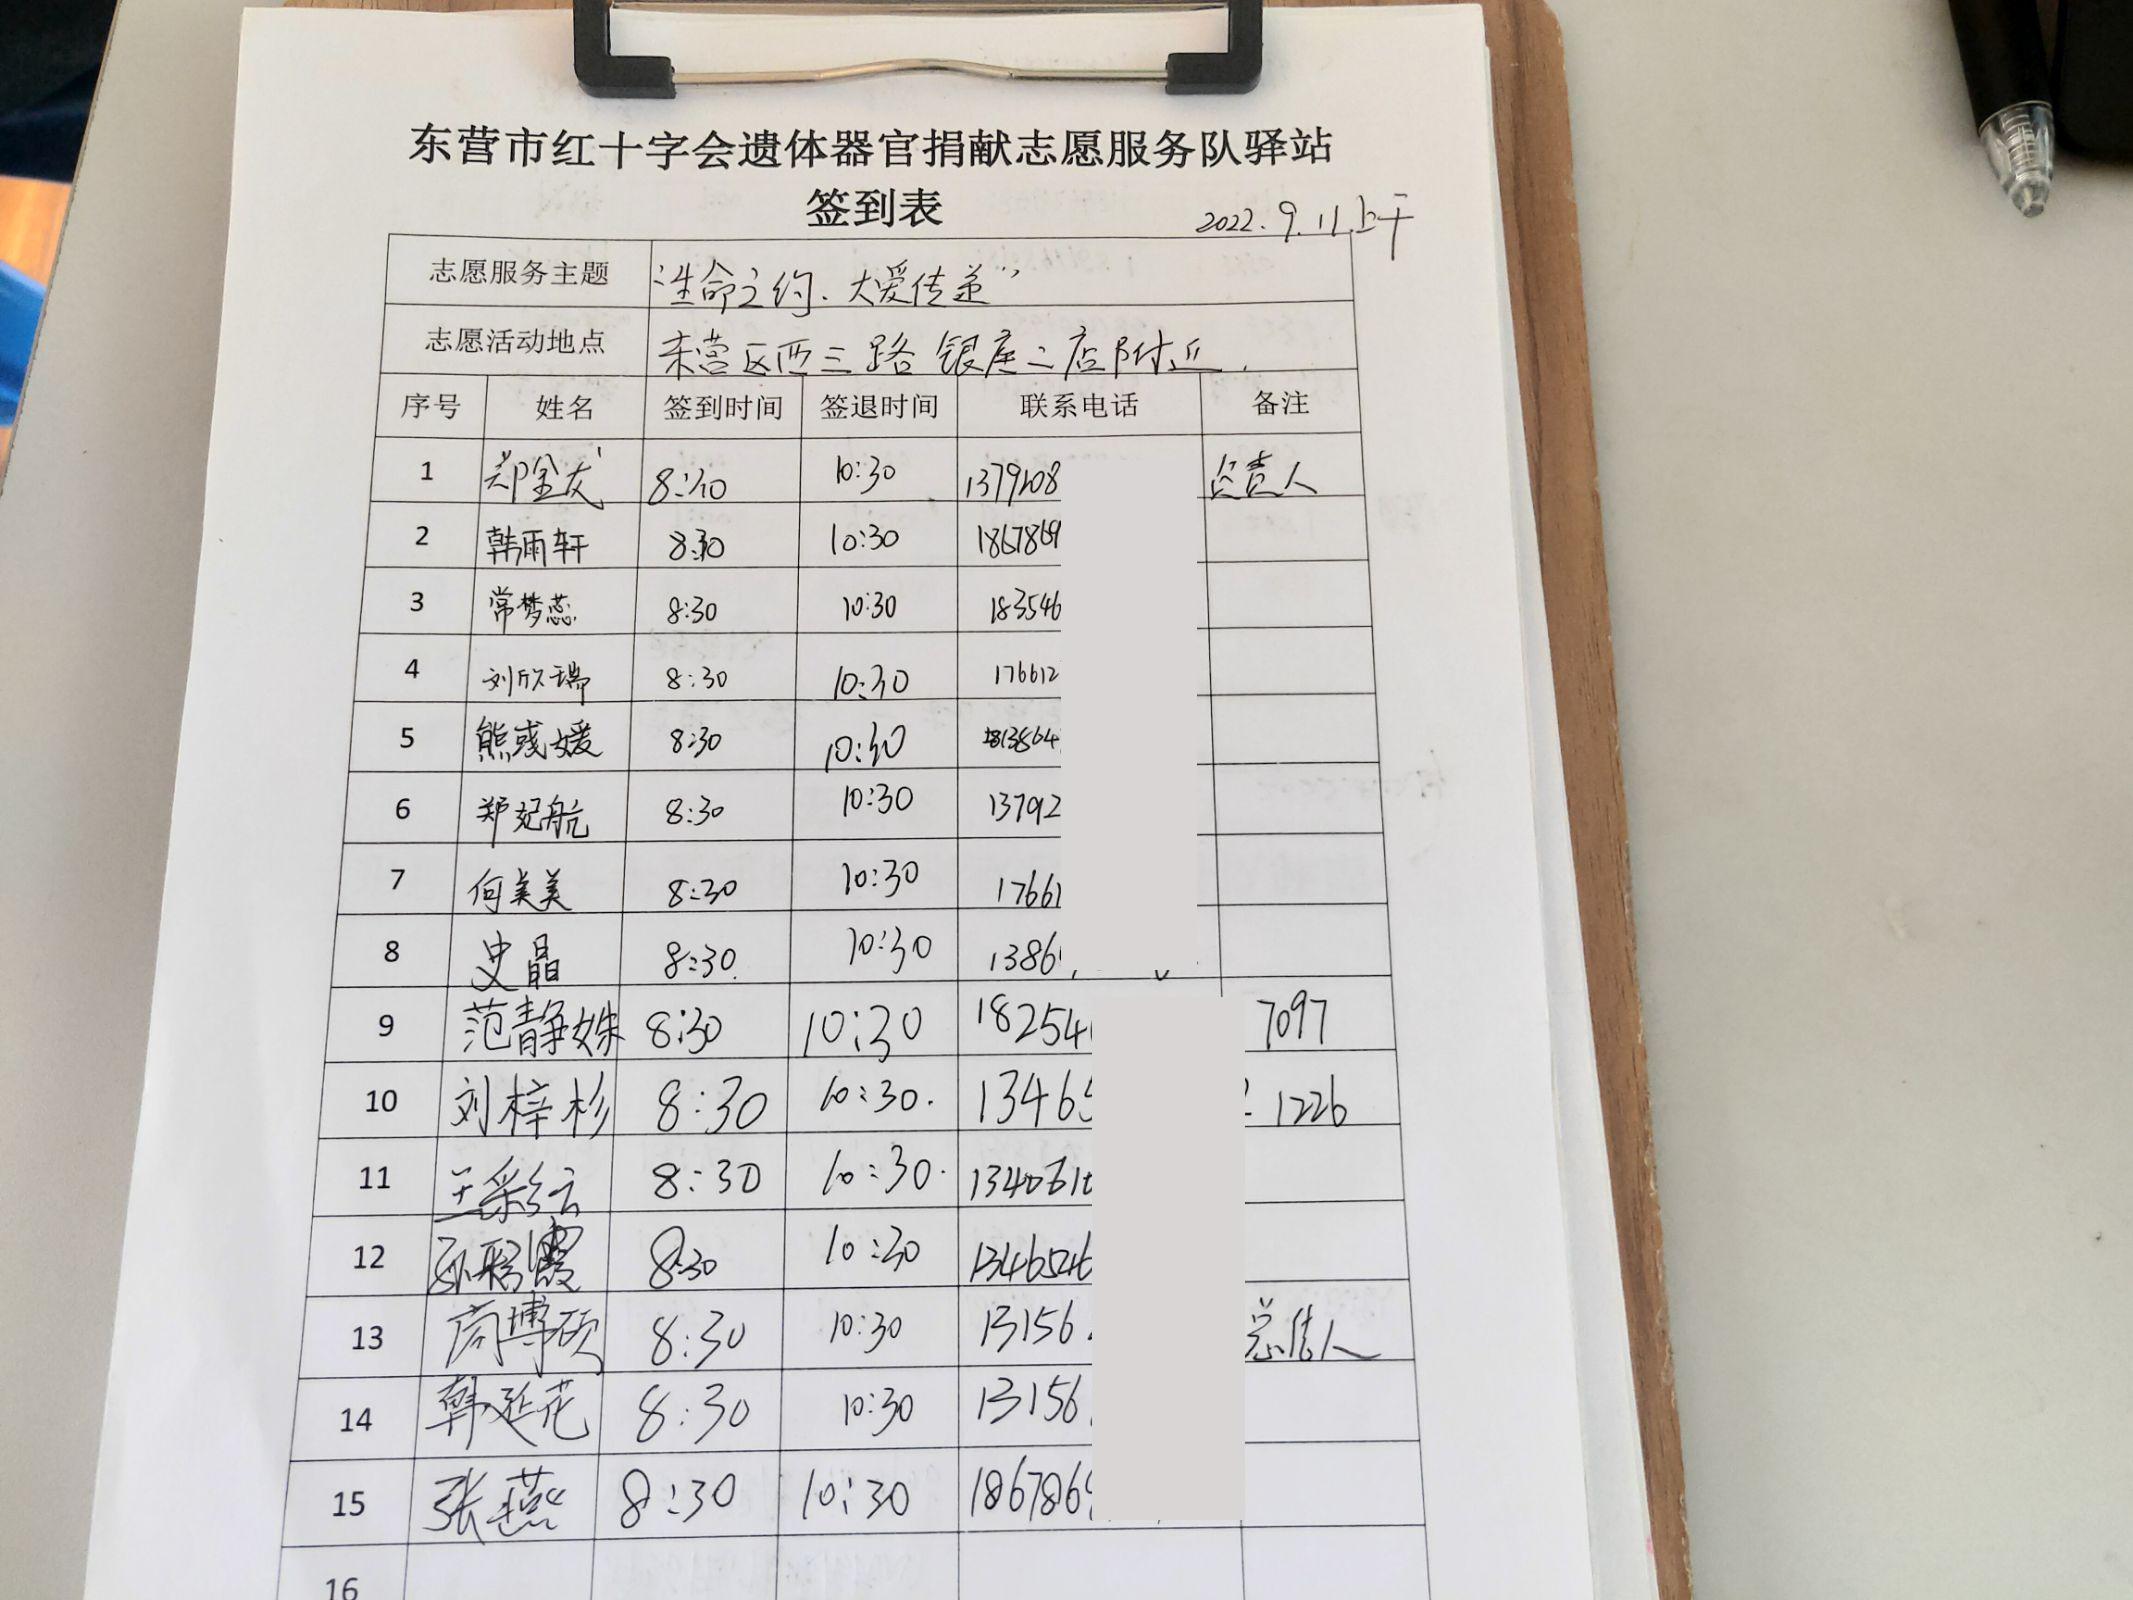 东营市红十字会遗体器官捐献志愿服务队驿站
签到表
2022.9.11上午
志愿服务主题 “生命之约、大爱传递”
志愿活动地点 东营区西三路银座二店附近.
序号 姓名 签到时间 签退时间 联系电话 备注
1 郑金友 8:30 10:30 1379208 负责人
2 韩雨轩 8:30 10:30 1867869
3 常梦蕊 8:30 10:30 183546
4 刘欣瑞 8:30 10:30 176612
5 熊彧媛 8:30 10:30
6 郑妃航 8:30 10:30 13792
7 何美美 8:30 10:30 1766
8 史晶 8:30 10:30 1386
9 范静姝 8:30 10:30 18254 7097
10 刘梓杉 8:30 10:30. 1346 1226
11 王彩云 8:30 10:30.
12 8:30 10:30 1346546
13 周博硕 8:30 10:30 13156 总结人
14 韩延花 8:30 10:30 13156
15 张燕 8:30 10:30 186786
16